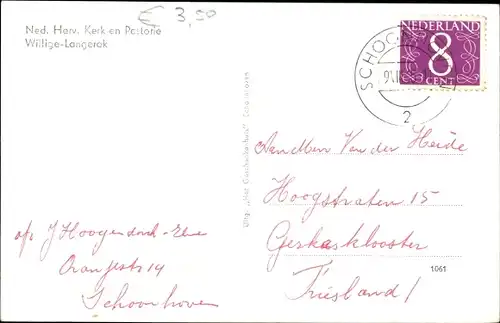 € 3,50
Ned. Herv. Kerk en Pastorie
Willige-Langerak
NEDERLAND
8
CENT
SCHOO
2
Uitg. „Het Geschenkenhuis" Schoonhoven
Aan Mken Van der Heide
Hoogstraten 15
Geskesklooster
Friesland
1061
afz J Hoogendoorn-
Oranjestr 14
Schoonhoven